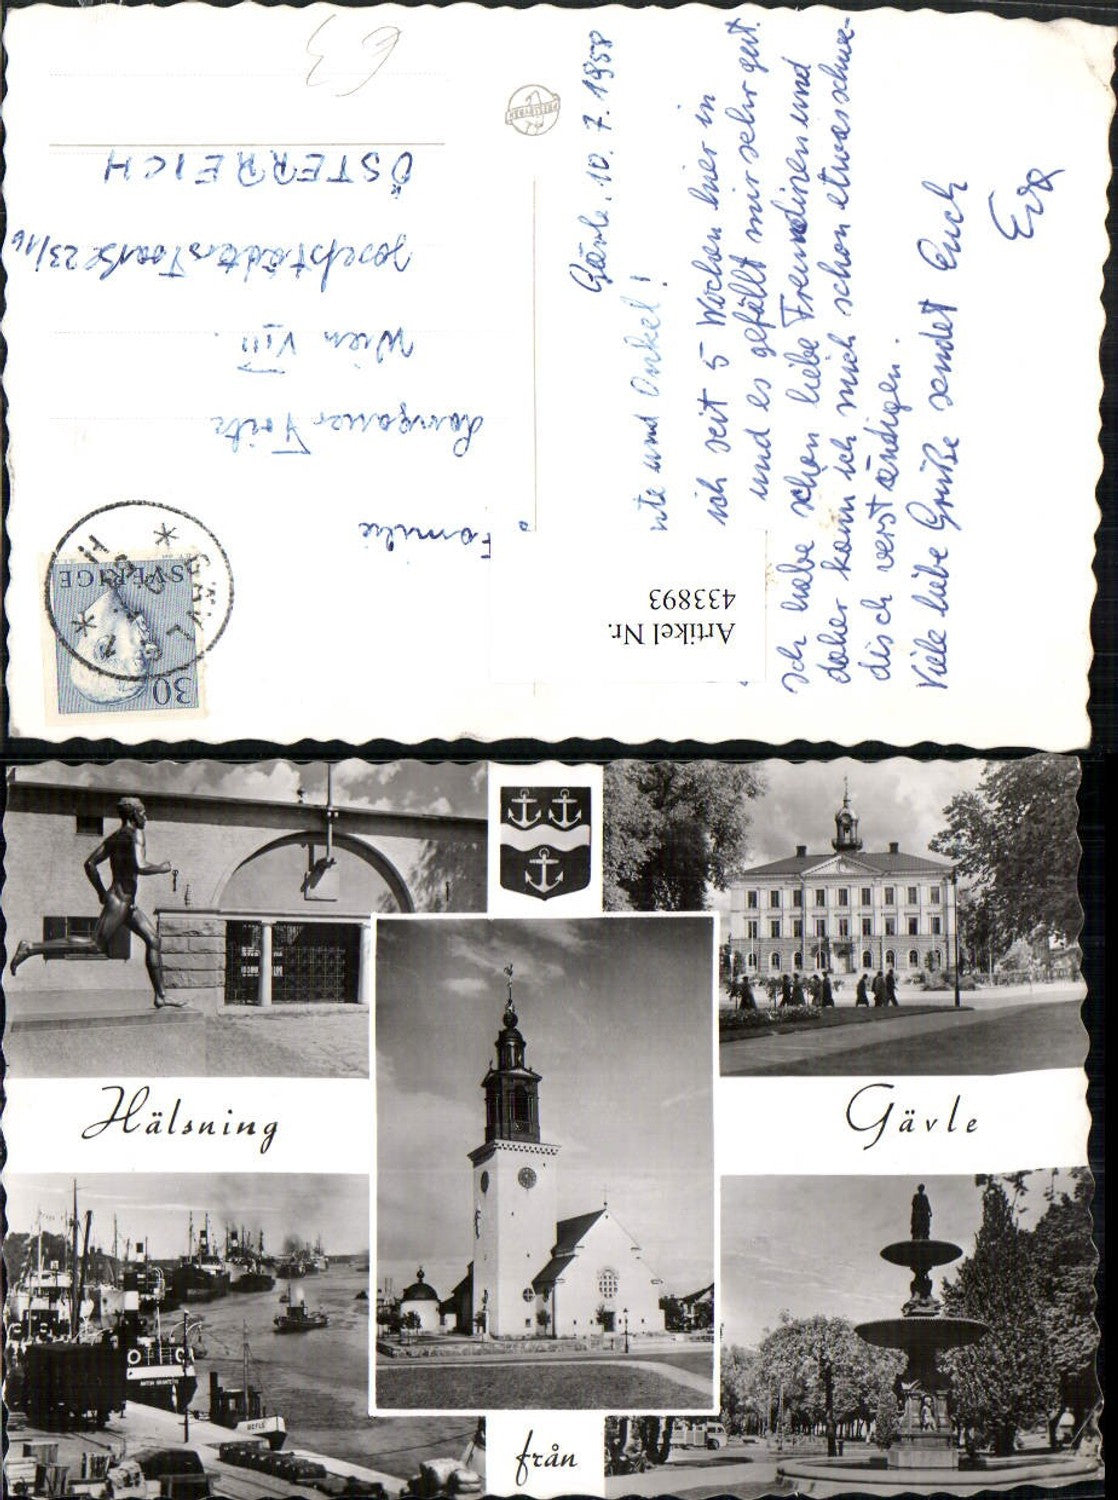 Gävle. 10. 7. 1958
nte und Onkel!
ich seit 5 Wochen hier in
und es gefällt mir sehr gut.
Ich habe schon liebe Freundinen und
daher kann ich mich schon etwas schwe-
disch verständigen.
Viele liebe Grüße sendet Euch
Eva
Familie
Fritz
Wien VIII.
Josefstädterstraße 23/16
ÖSTERREICH
SVERIGE
30
GÄVLE
Artikel Nr.
433893
Hälsning
från
Gävle
GEFLE